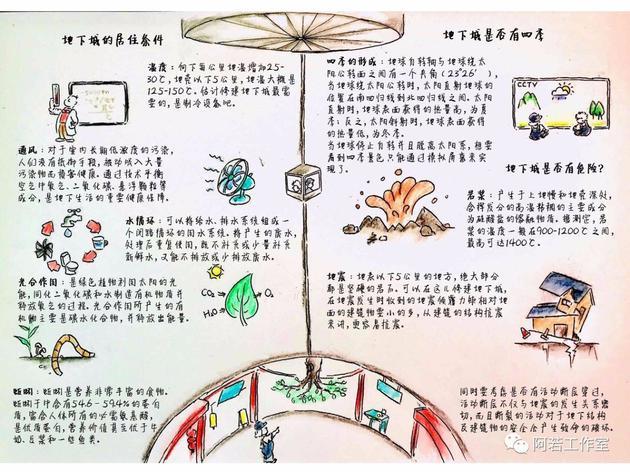 地下城的居住条件
温度：向下每公里地温增加25-
30℃，地壳以下5公里，地温大概是
125-150℃。估计修建地下城最需
要的，是制冷设备吧。
通风：对于室内长期低浓度的污染，
人们没有抵御手段，被动吸入大量
污染物而损害健康。通过技术平衡
空气中氧气、二氧化碳、悬浮颗粒等
成分，是地下生活的重要健康保障。
水循环：可以将给水、排水系统组成一
个闭路循环的用水系统。将产生的废水，
处理后重复使用，既不补或少量补充
新鲜水，又能不排放或少排放废水。
光合作用：是绿色植物利用太阳的光
能，同化二氧化碳和水制造有机物质并
释放氧气的过程。光合作用所产生的有
机物主要是碳水化合物，并释放出能量。
CO₂
O₂
H₂O
蚯蚓：蚯蚓是营养非常丰富的食物。
蚯蚓干中含有54.6-59.4%的蛋白
质，富含人体所有的必需氨基酸，
是优质蛋白，营养价值甚至优于牛
奶、豆浆和一些鱼类。
地下城是否有四季
四季的形成：地球自转轴与地球绕太
阳公转面之间有一个夹角（23°26'），
当地球绕太阳公转时，太阳直射地球的
位置在南回归线到北回归线之间。太阳
直射时，地球表面获得的热量高，为夏
季；反之，太阳斜射时，地球表面获得
的热量低，为冬季。
当地球停止自转并且脱离太阳系，想要
看到四季景色只能通过模拟屏幕来实
现了。
CCTV
地下城是否有危险？
岩浆：产生于上地幔和地壳深处，
含挥发分的高温黏稠的主要成分
为硅酸盐的熔融物质。据测定，岩
浆的温度一般在900-1200℃之间，
最高可达1400℃。
地震：地表以下5公里的地方，绝大部分
都是坚硬的岩石。可以在这儿修建地下城，
在地震发生时收到的地震倾覆力都相对地
面的建筑物要小的多，从建筑的结构抗震
来讲，更容易抗震。
同时要考虑是否有活动断层穿过，
活动断层不仅与地震的发生关系密
切，而且断裂的活动对于地下结构
及建筑物的安全会产生致命的破坏。
阿若工作室